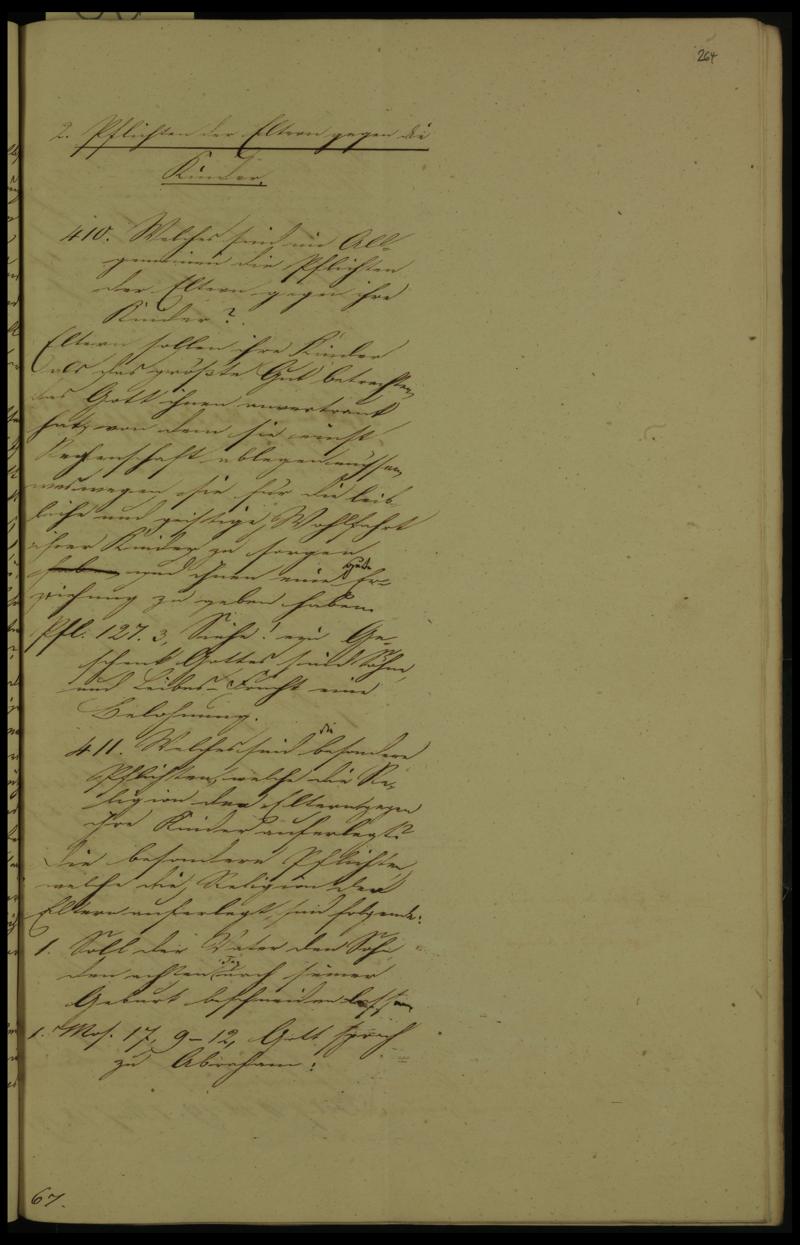 264
2. Pflichten der Eltern gegen die
Kinder.
410. Welches sind im All-
gemeinen die Pflichten
der Eltern gegen ihre
Kinder?
Eltern sollen ihre Kinder
als das größte Gut betrachten,
das Gott ihnen anvertraut
hat, von dem sie einst
Rechenschaft ablegen müssen,
weswegen sie für die leib-
liche und geistige Wohlfahrt
ihrer Kinder zu sorgen
haben und ihnen eine gute Er-
ziehung zu geben haben.
Psl. 127. 3, Siehe! ein Ge-
schenk Gottes sind Söhne,
und Leibes-Frucht eine
Belohnung.
411. Welches sind die besondere
Pflichten, welche die Re-
ligion den Eltern gegen
ihre Kinder auferlegt?
Die besondere Pflichten,
welche die Religion den
Eltern auferlegt, sind folgende:
1. Soll der Vater den Sohn
den achten Tag nach seiner
Geburt beschneiden lassen
1. Mos. 17, 9-12, Gott sprach
zu Abraham:
67.